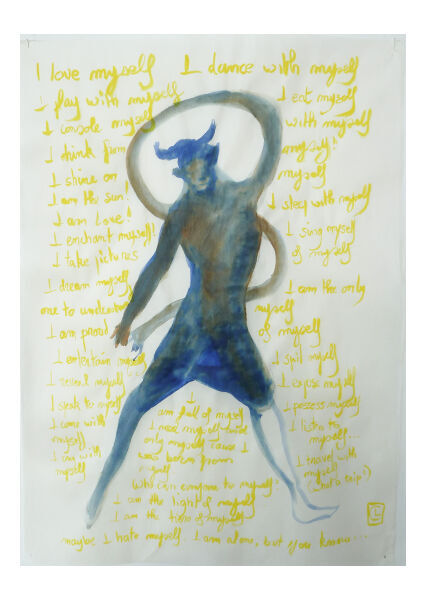 I love myself I dance with myself
I play with myself I eat myself
I console myself with myself
I think from myself!
I shine on myself
I am the sun! I sleep with myself
I am Love! I sing myself
I enchant myself! of myself
I take pictures
I dream myself I am the only
one to understand myself
I am proud of myself
I entertain myself I spil myself
I reveal myself I expose myself
I speak to myself I possess myself
I am full of myself
I come with myself I need my self-build I listen to myself...
only myself cause I
I am with myself was born from I travel with myself
myself (what a trip!)
who can compare to myself
I am the light of myself
I am the time of myself
maybe I hate myself. I am alone, but you know...